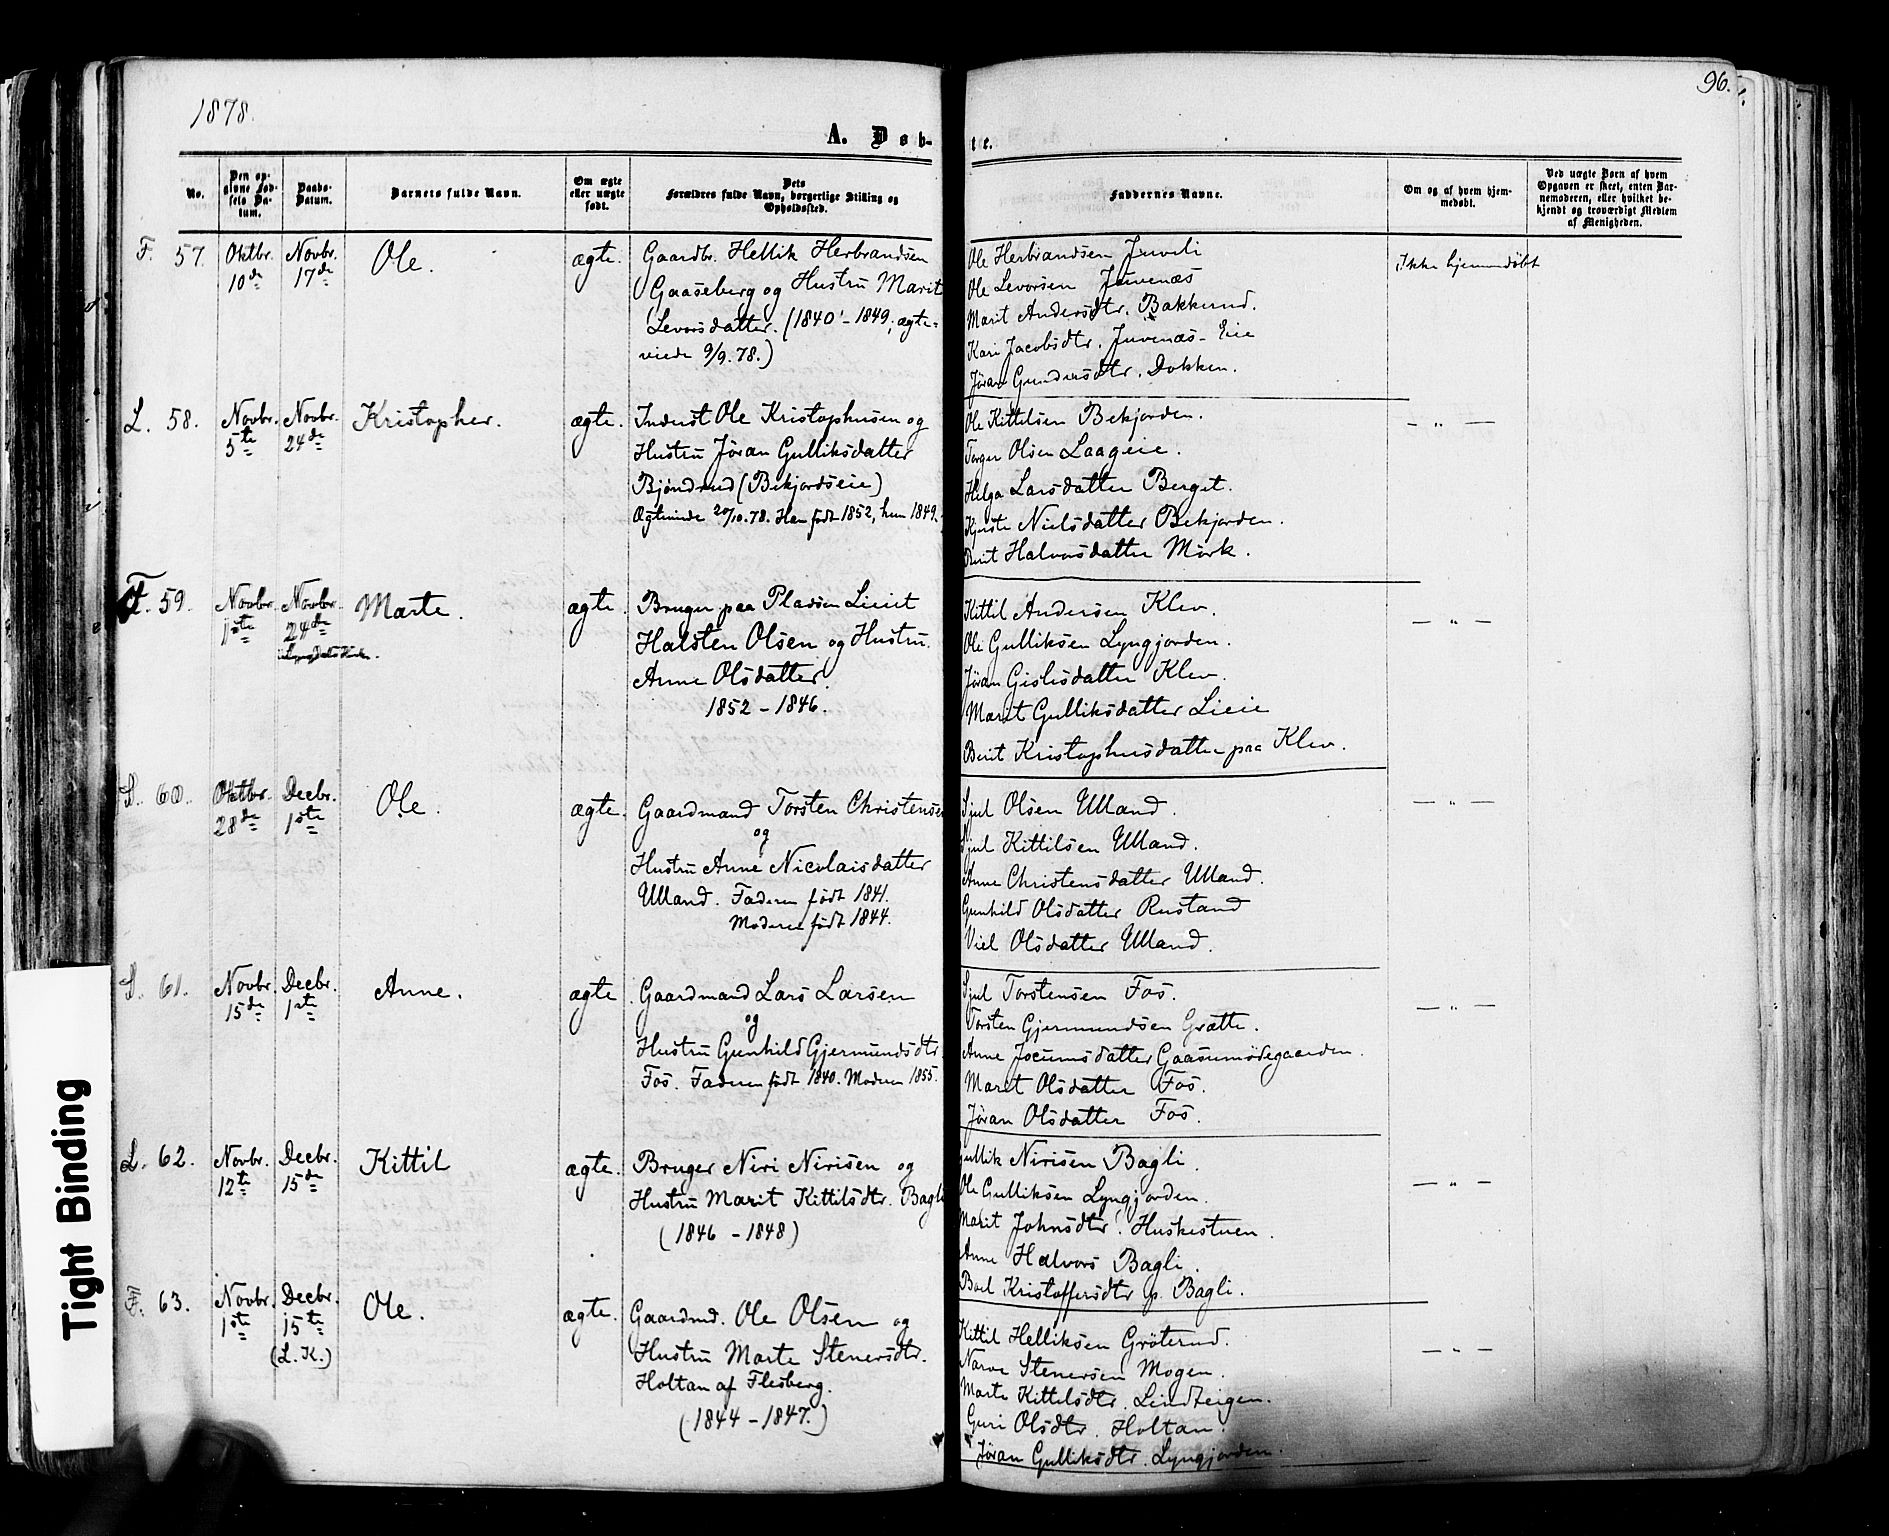 1878.
96.
A. Døb-
te.
No.
Den op-
givne Fød-
sels Da-
tum.
Daabs-
Datum.
Barnets fulde Navn.
Om ægte
eller uægte
født.
Dets
Forældres fulde Navn, borgerlige Stilling og
Opholdssted.
Faddernes Navne.
Om og af hvem hjem-
medøbt.
Ved uægte Børn af hvem
Opgaven er skeet, enten Bar-
nemoderen, eller hvilket be-
kjendt og troværdigt Medlem
af Menigheden.
F. 57. Oktbr. 10de Novbr. 17de Ole. ægte.
Gaardbr. Hellik Herbrandsen
Gaaseberg og Hustru Marit
Levorsdatter. (1840 - 1849; ægte-
viede 9/9.78.)
Ole Herbrandsen Juveli
Ole Levorsen Juvenæs
Marit Andersdtr. Bakkerud.
Kari Jacobsdtr. Juvenæs-Eie
Jöran Gundersdtr. Dokken.
Ikke hjemmedøbt
L. 58. Novbr. 5te Novbr. 24de Kristopher. ægte.
Inderst Ole Kristophersen og
Hustru Jöran Gulliksdatter
Bjöndrud (Bekjordseie)
Ægteviede 20/10.78. Han født 1852, hun 1849.
Ole Kittilsen Bekjorden.
Torger Olsen Laageie.
Helga Larsdatter Berget.
Kjersti Nielsdatter Bekjorden.
Berit Halvorsdatter Mörk.
— „ —
F. 59. Novbr. 1ste Novbr. 24de Marte. ægte.
Bruger paa Pladsen Lieiet
Halsten Olsen og Hustru
Anne Olsdatter.
1852 - 1846.
Kittil Andersen Klev.
Ole Gulliksen Lyngjorden.
Jöran Gislesdatter Klev.
Marit Gulliksdatter Lieie
Berit Kristophersdatter paa Klev.
— „ —
S. 60. Oktbr. 28de Decbr. 1ste Ole. ægte.
Gaardmand Torsten Christensen
og
Hustru Anne Nicolaisdatter
Ulland. Faderen født 1841.
Moderen født 1844.
Sjul Olsen Ulland.
Sjul Kittilsen Ulland.
Anne Christensdatter Ulland.
Gunhild Olsdatter Rustand
Viel Olsdatter Ulland.
— „ —
S. 61. Novbr. 15de Decbr. 1ste Anne. ægte.
Gaardmand Lars Larsen
og
Hustru Gunhild Gjermundsdtr.
Fos. Faderen født 1840. Moderen 1855.
Sjul Torstensen Fos.
Torsten Gjermundsen Grætte.
Anne Jocumsdatter Gaasemødegaarden.
Marit Olsdatter Fos.
Jöran Olsdatter Fos.
— „ —
L. 62. Novbr. 12te Decbr. 15de Kittil ægte.
Bruger Niri Nirisen og
Hustru Marit Kittilsdtr. Bagli
(1846 - 1848)
Gullik Nirisen Bagli.
Ole Gulliksen Lyngjorden.
Marit Johnsdtr. Huskestuen.
Anne Halvors Bagli.
Boel Kristoffersdtr p. Bagli.
— „ —
F. 63. Novbr. 1ste Decbr. 15te (L.K.) Ole. ægte.
Gaardmd. Ole Olsen og
Hustru Marte Stenersdtr.
Holtan af Flesberg.
(1844 - 1847.)
Kittil Helliksen Gröterud.
Narve Stenersen Mogen.
Marte Kittilsdtr. Lindteigen.
Guri Olsdtr. Holtan.
Jöran Gulliksdtr. Lyngjorden.
— „ —
Tight Binding